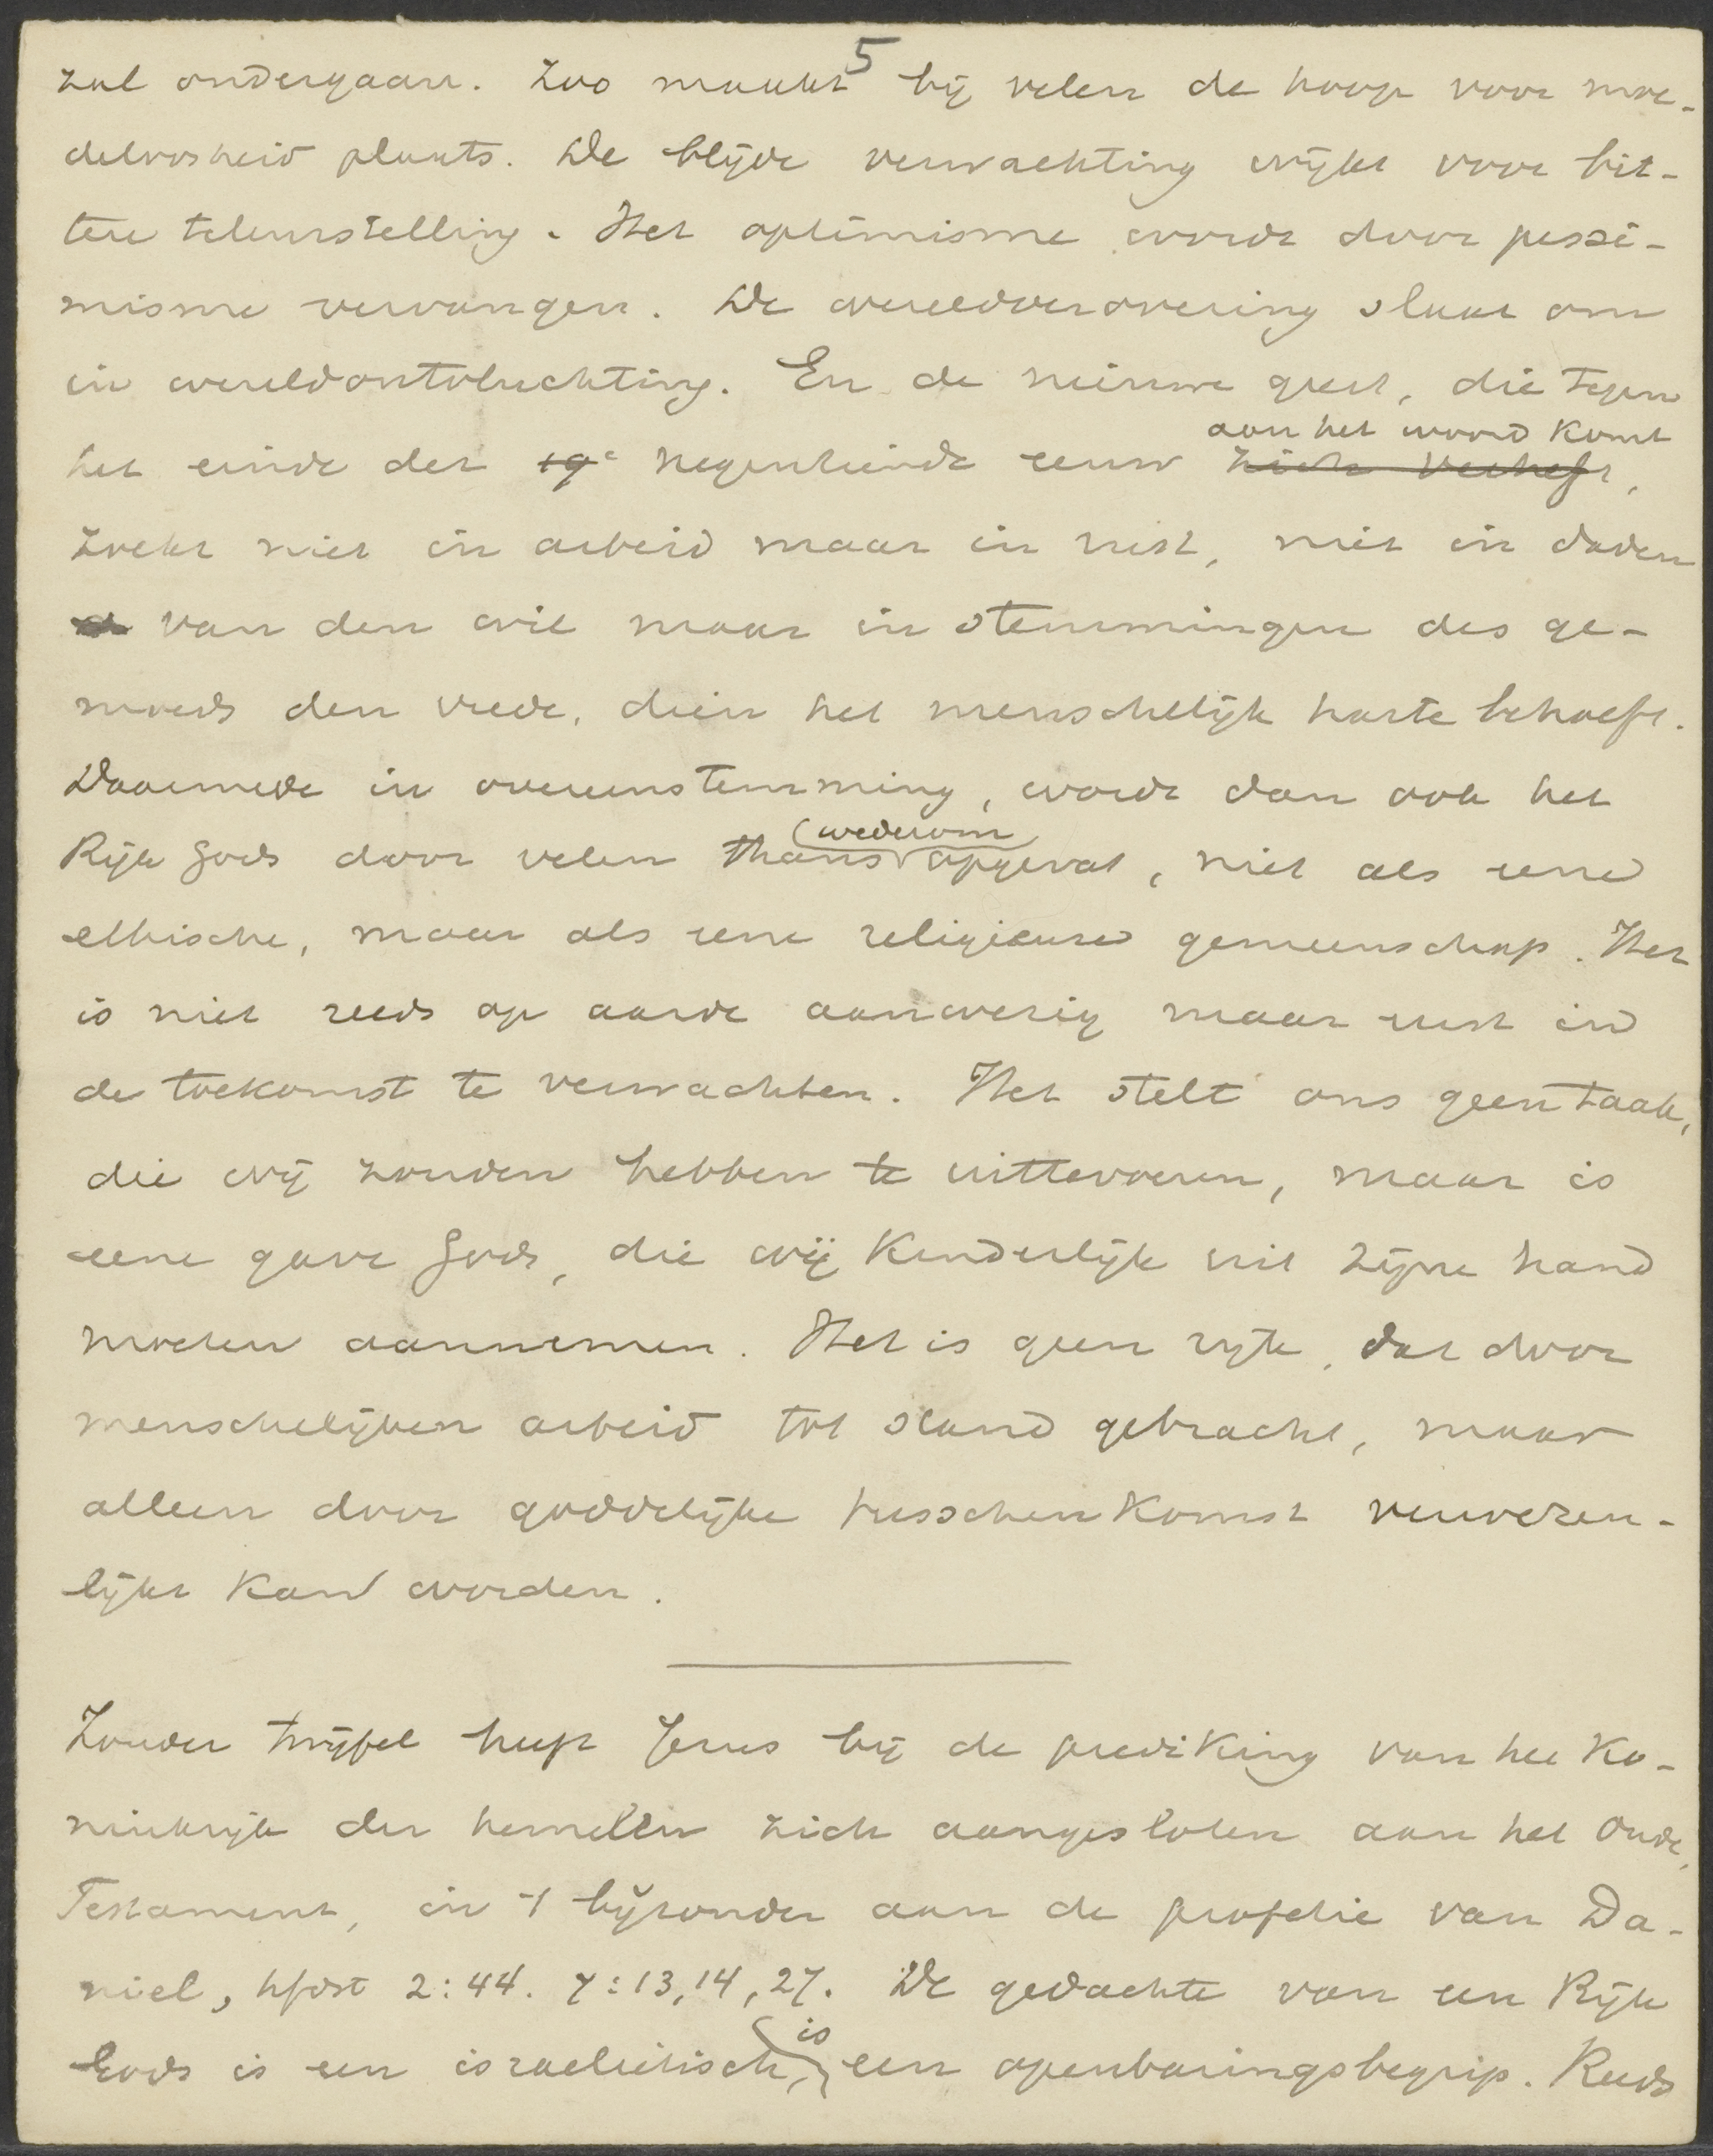 5
zal ondergaan. Zoo maakt bij velen de hoop voor moe-
deloosheid plaats. De blijde verwachting wijkt voor bit-
tere teleurstelling. Het optimisme wordt door pessi-
misme vervangen. De wereldverovering slaat om
in wereldontvluchting. En de nieuwe geest, die tegen
aan het woord komt
het einde der 19e negentiende eeuw zich verheft,
zoekt niet in arbeid maar in rust, niet in daden
van den wil maar in stemmingen des ge-
moeds den vrede, dien het menschelijk harte behoeft.
Daarmede in overeenstemming, wordt dan ook het
(wederom
Rijk Gods door velen thans opgevat, niet als eene
ethische, maar als eene religieuse gemeenschap. Het
is niet reeds op aarde aanwezig maar eerst in
de toekomst te verwachten. Het stelt ons geen taak,
die wij zouden hebben te uittevoeren, maar is
eene gave Gods, die wij kinderlijk uit zijne hand
moeten aannemen. Het is geen rijk, dat door
menschelijken arbeid tot stand gebracht, maar
alleen door goddelijke tusschenkomst verwezen-
lijkt kan worden.
Zonder twijfel heeft Jezus bij de prediking van het Ko-
ninkrijk der hemelen zich aangesloten aan het Oude
Testament, in 't bijzonder aan de profetie van Da-
niel, hfdst 2:44. 7:13,14,27. De gedachte van een Rijk
is
Gods is een israelietisch, een openbaringsbegrip. Reeds